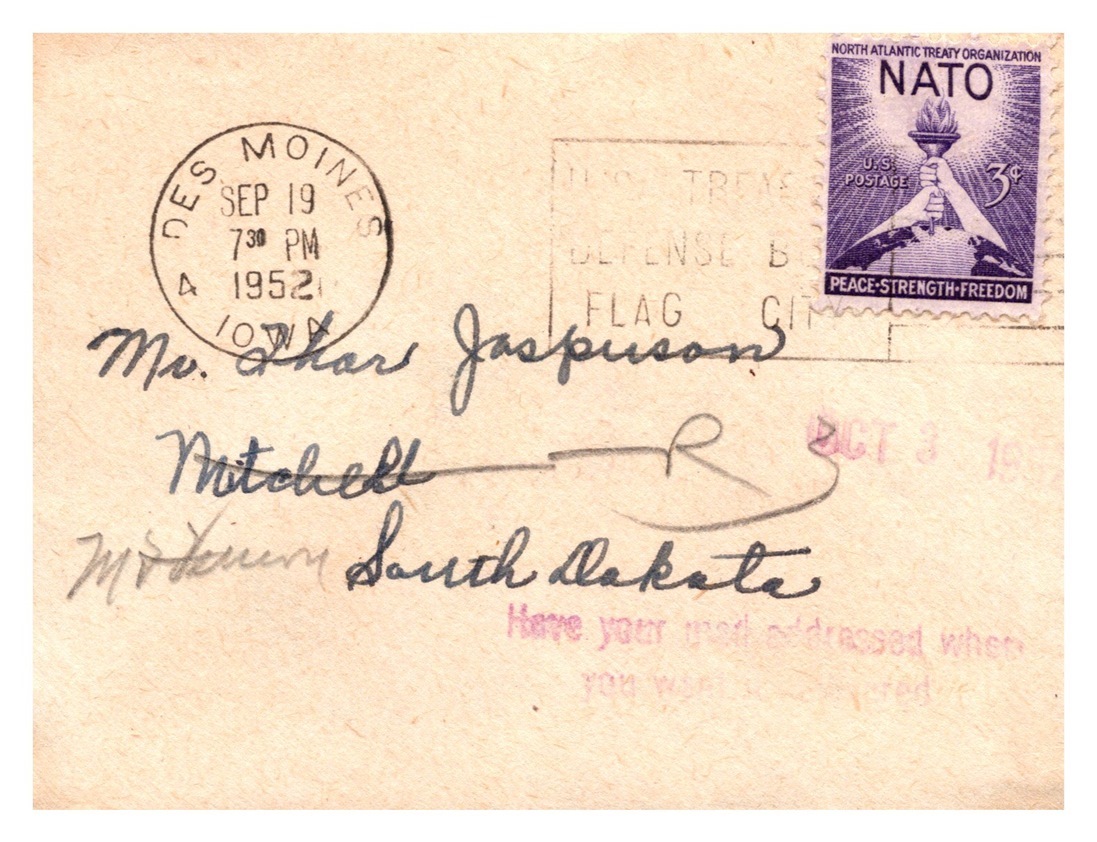 NORTH ATLANTIC TREATY ORGANIZATION
NATO
U.S. POSTAGE
3¢
PEACE·STRENGTH·FREEDOM
DES MOINES
SEP 19
7 30 PM
1952
4
IOWA
U.S. TREAS
DEFENSE B
FLAG CIT
Mr. Thor Jaspuson
Mitchell R 3
OCT 3 19
Mt Vernon South Dakota
Have your mail addressed where
you want